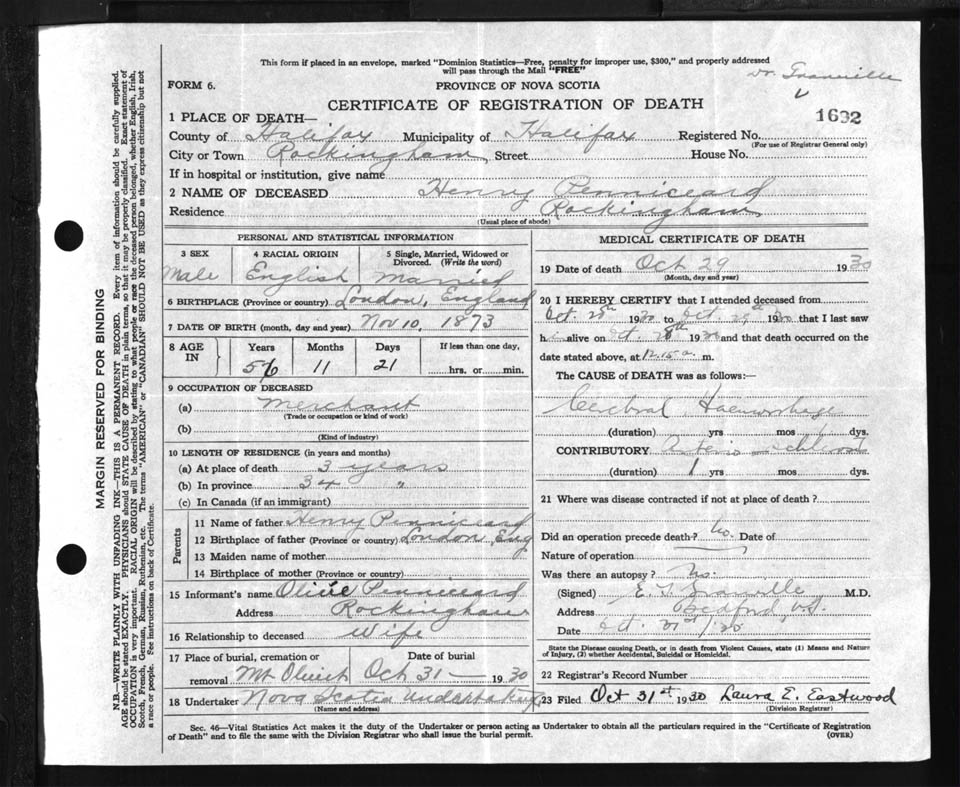 This form if placed in an envelope, marked "Dominion Statistics—Free, penalty for improper use, $300," and properly addressed
will pass through the Mail "FREE"
Dr. Granville
FORM 6.
PROVINCE OF NOVA SCOTIA
CERTIFICATE OF REGISTRATION OF DEATH
1632
1 PLACE OF DEATH—
County of Halifax Municipality of Halifax Registered No.
(For use of Registrar General only)
City or Town Rockingham Street House No.
If in hospital or institution, give name
2 NAME OF DECEASED Henry Penniceard
Residence Rockingham
(Usual place of abode)
PERSONAL AND STATISTICAL INFORMATION
3 SEX
4 RACIAL ORIGIN
5 Single, Married, Widowed or
Divorced. (Write the word)
Male English Married
6 BIRTHPLACE (Province or country) London, England
7 DATE OF BIRTH (month, day and year) Nov 10, 1873
8 AGE IN
Years Months Days If less than one day,
56 11 21 hrs. or min.
9 OCCUPATION OF DECEASED
(a) Merchant
(Trade or occupation or kind of work)
(b)
(Kind of industry)
10 LENGTH OF RESIDENCE (in years and months)
(a) At place of death 3 years
(b) In province 34 "
(c) In Canada (if an immigrant)
Parents
11 Name of father Henry Penniceard
12 Birthplace of father (Province or country) London, Eng
13 Maiden name of mother
14 Birthplace of mother (Province or country)
15 Informant's name Olive Penniceard
Address Rockingham
16 Relationship to deceased Wife
17 Place of burial, cremation or Date of burial
removal Mt Olivet Oct 31 — 1930
18 Undertaker Nova Scotia Undertaking
(Name and address)
MEDICAL CERTIFICATE OF DEATH
19 Date of death Oct 29 1930
(Month, day and year)
20 I HEREBY CERTIFY that I attended deceased from
Oct. 28th 1930 to Oct. 29th 1930 that I last saw
h alive on Oct. 28th 1930 and that death occurred on the
date stated above, at 12.15 a. m.
The CAUSE of DEATH was as follows:—
Cerebral Haemorrhage
(duration) yrs mos 1 dys.
CONTRIBUTORY Arterio
(duration) 1 yrs mos dys.
21 Where was disease contracted if not at place of death?
Did an operation precede death? No. Date of
Nature of operation
Was there an autopsy? No.
(Signed) E. Granville M.D.
Address Bedford, N.S.
Date Oct. 31st/30
State the Disease causing Death, or in death from Violent Causes, state (1) Means and Nature
of Injury, (2) whether Accidental, Suicidal or Homicidal.
22 Registrar's Record Number
23 Filed Oct 31st 1930 Laura E. Eastwood
(Division Registrar)
Sec. 46—Vital Statistics Act makes it the duty of the Undertaker or person acting as Undertaker to obtain all the particulars required in the "Certificate of Registration
of Death" and to file the same with the Division Registrar who shall issue the burial permit.
(OVER)
MARGIN RESERVED FOR BINDING
N.B.—WRITE PLAINLY WITH UNFADING INK—THIS IS A PERMANENT RECORD. Every item of information should be carefully supplied.
AGE should be stated EXACTLY. PHYSICIANS should STATE CAUSE OF DEATH in plain terms, so that it may be properly classified. Exact statement of
OCCUPATION is very important. RACIAL ORIGIN will be described by stating to what people or race the deceased person belonged, whether English, Irish,
Scotch, French, German, Russian, Ruthenian, etc. The terms "AMERICAN" or "CANADIAN" SHOULD NOT BE USED as they express citizenship but not
a race or people. See instructions on back of Certificate.